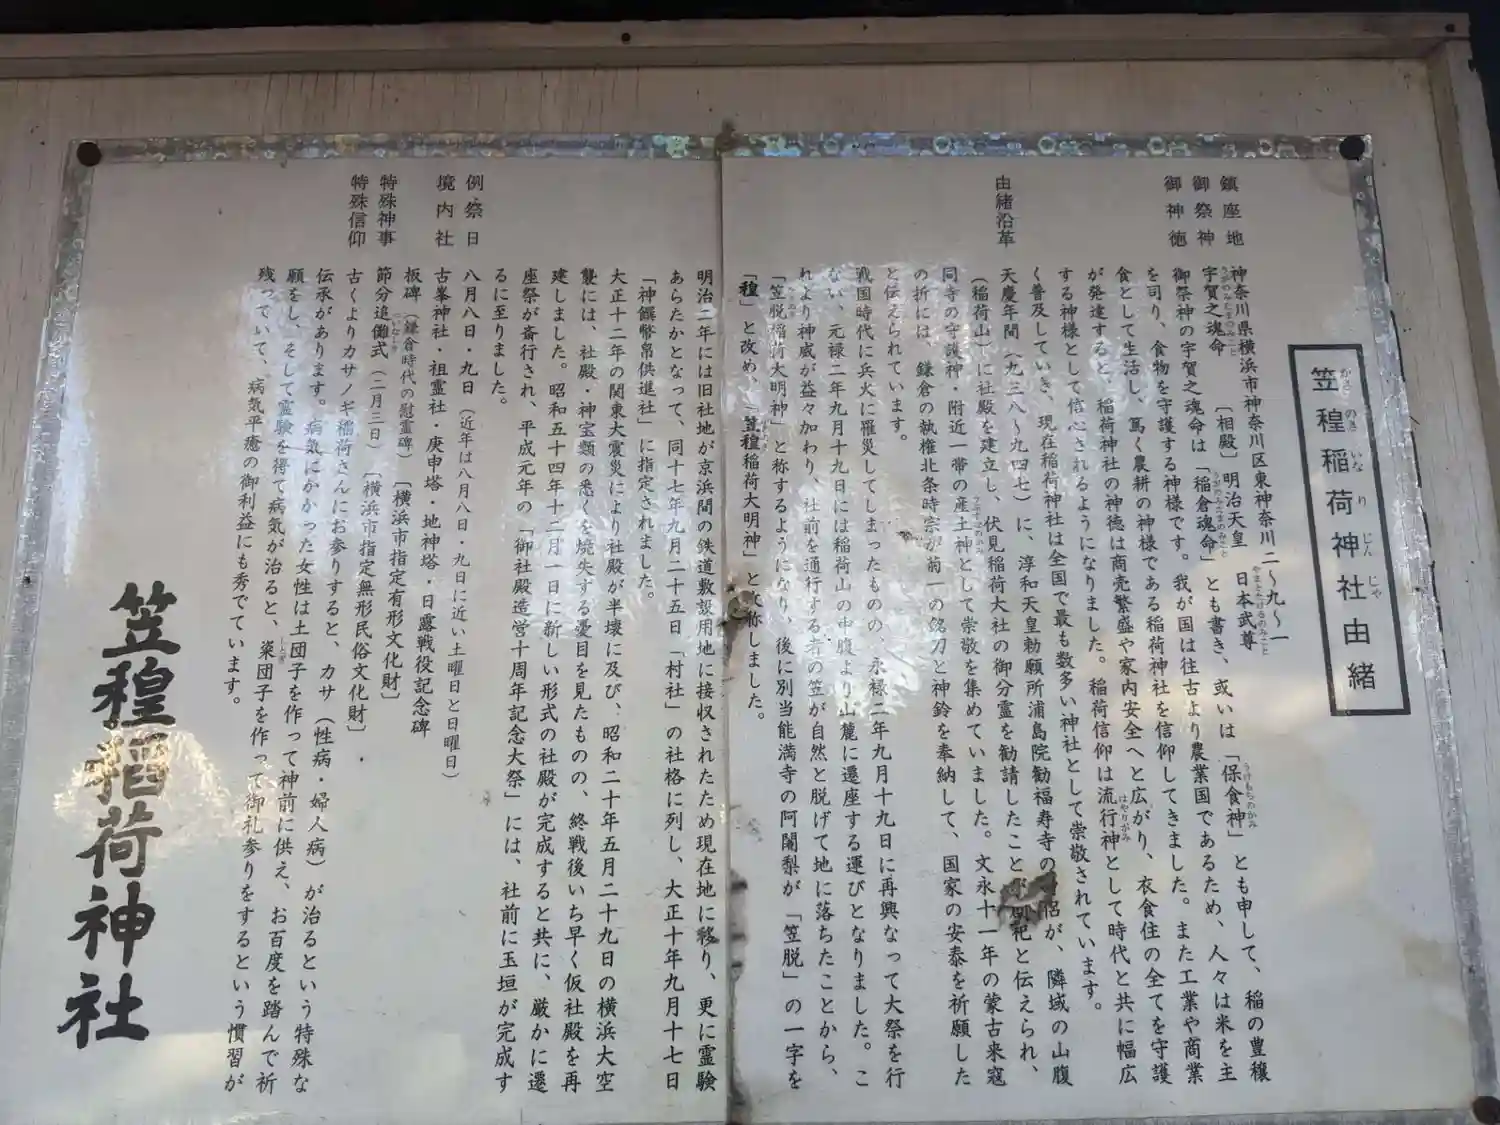 笠䅣稲荷神社由緒
鎮座地　神奈川県横浜市神奈川区東神奈川二〜九〜一
御祭神　宇賀之魂命　〔相殿〕明治天皇　日本武尊
御神徳　御祭神の宇賀之魂命は「稲倉魂命」とも書き、或いは「保食神」とも申して、稲の豊穣
を司り、食物を守護する神様です。我が国は往古より農業国であるため、人々は米を主
食として生活し、篤く農耕の神様である稲荷神社を信仰してきました。また工業や商業
が発達すると、稲荷神社の神徳は商売繁盛や家内安全へと広がり、衣食住の全てを守護
する神様として信心されるようになりました。稲荷信仰は流行神として時代と共に幅広
く普及していき、現在稲荷神社は全国で最も数多い神社として崇敬されています。
由緒沿革　天慶年間（九三八〜九四七）に、淳和天皇勅願所浦島院勧福寿寺の僧侶が、隣域の山腹
（稲荷山）に社殿を建立し、伏見稲荷大社の御分霊を勧請したことが創祀と伝えられ、
同寺の守護神・附近一帯の産土神として崇敬を集めていました。文永十一年の蒙古来寇
の折には、鎌倉の執権北条時宗が菊一の銘刀と神鈴を奉納して、国家の安泰を祈願した
と伝えられています。
戦国時代に兵火に罹災してしまったものの、永禄二年九月十九日に再興なって大祭を行
ない、元禄二年九月十九日には稲荷山の中腹より山麓に遷座する運びとなりました。こ
れより神威が益々加わり、社前を通行する者の笠が自然と脱げて地に落ちたことから、
「笠脱稲荷大明神」と称するようになり、後に別当能満寺の阿闍梨が「笠脱」の一字を
「䅣」と改め、「笠䅣稲荷大明神」と改称しました。
明治二年には旧社地が京浜間の鉄道敷設用地に接収されたため現在地に移り、更に霊験
あらたかとなって、同十七年九月二十五日「村社」の社格に列し、大正十年九月十七日
「神饌幣帛供進社」に指定されました。
大正十二年の関東大震災により社殿が半壊に及び、昭和二十年五月二十九日の横浜大空
襲には、社殿・神宝類の悉くを焼失する憂目を見たものの、終戦後いち早く仮社殿を再
建しました。昭和五十四年十二月一日に新しい形式の社殿が完成すると共に、厳かに遷
座祭が斎行され、平成元年の「御社殿造営十周年記念大祭」には、社前に玉垣が完成す
るに至りました。
例祭日　八月八日・九日（近年は八月八日・九日に近い土曜日と日曜日）
境内社　古峯神社・祖霊社・庚申塔・地神塔・日露戦役記念碑
板碑（鎌倉時代の慰霊碑）〔横浜市指定有形文化財〕
特殊神事　節分追儺式（二月三日）〔横浜市指定無形民俗文化財〕
特殊信仰　古くよりカサノギ稲荷さんにお参りすると、カサ（性病・婦人病）が治るという特殊な
伝承があります。病気にかかった女性は土団子を作って神前に供え、お百度を踏んで祈
願をし、そして霊験を得て病気が治ると、粢団子を作って御礼参りをするという慣習が
残っていて、病気平癒の御利益にも秀でています。
笠䅣稲荷神社